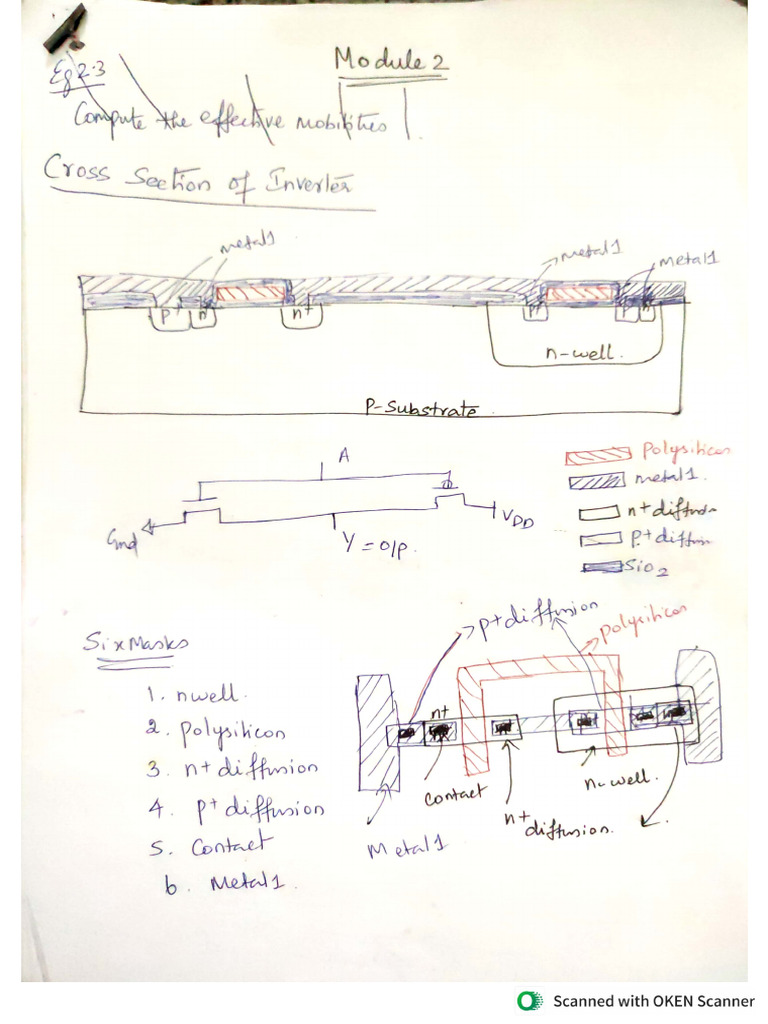 Module 2
Eg 2.3
Compute the effective mobilities
Cross Section of Inverter
metal1
metal1
metal1
p+
n+
n+
p+
p+
n+
n-well.
P-Substrate
A
Gnd
VDD
Y = o/p.
Polysilicon
metal1.
n+ diffusion
p+ diffusion
SiO2
Six Masks
1. nwell.
2. polysilicon
3. n+ diffusion
4. p+ diffusion
5. Contact
6. Metal1.
p+ diffusion
polysilicon
n+
contact
n+
diffusion.
n-well.
Metal1
Scanned with OKEN Scanner